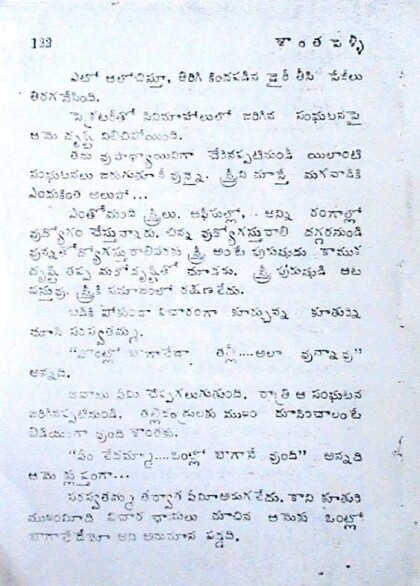 132 శాంతపెళ్ళి
ఎటో ఆలోచిస్తూ, తిరిగి కిందపడిన డైరీ తీసి పేజీలు
తిరగవేసింది.
సినిమాహాలులో జరిగిన సంఘటనపై
ఆమె దృష్టి నిలిచిపోయింది.
తను వుపాధ్యాయినిగా చేరినప్పటినుండి యిలాంటి
సంఘటనలు జరుగుతూనే వున్నై. స్త్రీని చూస్తే మగవాడికి
ఎందుకింత అలుసో...
ఎంతోమంది స్త్రీలు. ఆఫీసుల్లో, అన్ని రంగాల్లో
వుద్యోగం చేస్తున్నారు. చిన్న వుద్యోగస్తురాలి దగ్గరనుండి
స్త్రీ అంటే పురుషుడు కాముక
దృష్టి తప్ప మరోదృష్టితో చూడడు. స్త్రీ పురుషుడి ఆట
వస్తువు. స్త్రీకి సమాజంలో రక్షణలేదు.
బడికి పోకుండా విచారంగా కూర్చున్న కూతుర్ని
చూసి సరస్వతమ్మ.
“వొంట్లో బాగాలేదా తల్లీ....అలా వున్నావు”
అన్నది.
జవాబు ఏమి చెప్పగలుగుతుంది. రాత్రి ఆ సంఘటన
జరిగినప్పటినుండి. తల్లిదండ్రులకు ముఖం చూపించాలంటే
వుంది శాంతకు.
“ఏం లేదమ్మా....ఒంట్లో బాగానే వుంది” అన్నది
ఆమె క్లుప్తంగా...
సరస్వతమ్మ తర్వాత ఏమీఅడుగలేదు. కాని కూతురి
ముఖంమీది విచార ఛాయలు చూచిన ఆమెకు ఒంట్లో
బాగాలేదేమో అని అనుమాన పడ్డది.